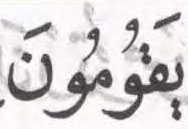 يَقُومُونَ